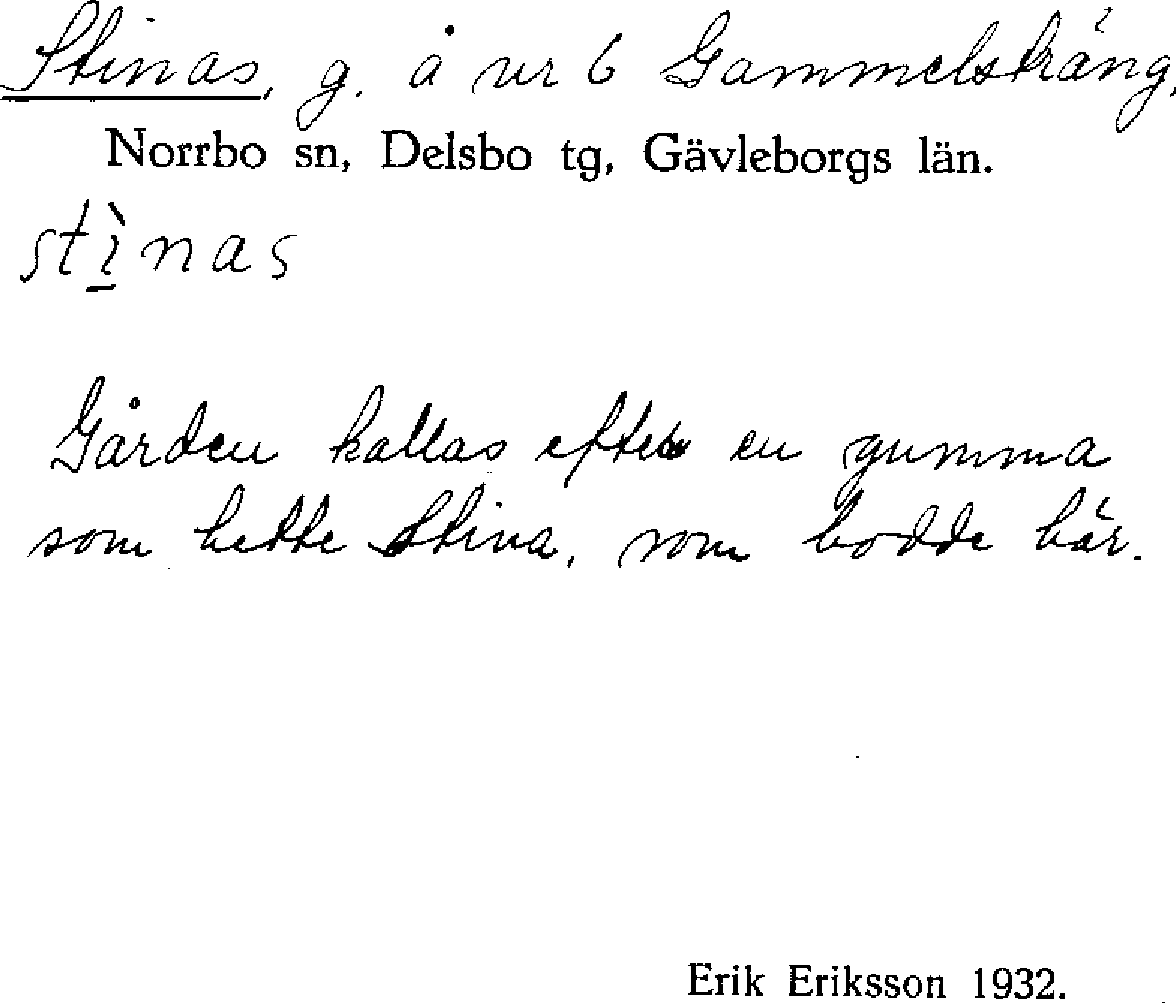 Stinas, g. å nr 6 Gammelsträng,
Norrbo sn, Delsbo tg, Gävleborgs län.
stìnas
Gården kallas efter en gumma
som hette Stina, som bodde här.
Erik Eriksson 1932.